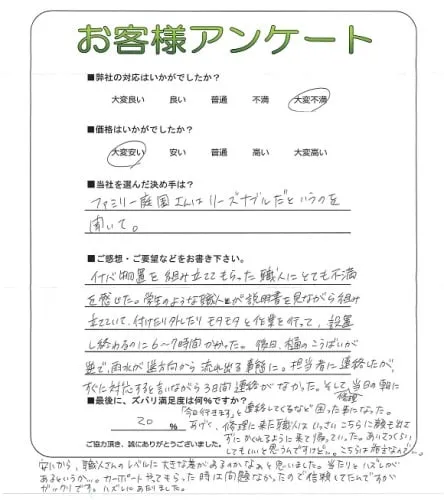 お客様アンケート
■弊社の対応はいかがでしたか？
大変良い 良い 普通 不満 大変不満
■価格はいかがでしたか？
大変安い 安い 普通 高い 大変高い
■当社を選んだ決め手は？
ファミリー庭園さんはリーズナブルだというのを
聞いて。
■ご感想・ご要望などをお書き下さい。
イナバ物置を組み立ててもらった職人にとても不満
を感じた。学生のような職人が説明書を見ながら組み
立てていて、付けたり外したりモタモタと作業を行って、設置
し終わるのに6～7時間かかった。後日、樋のこうばいが
逆で、雨水が逆方向から流れ出る事態に。担当者に連絡したが、
すぐに対応すると言いながら3日間連絡がなかった。そして、当日の朝に
■最後に、ズバリ満足度は何％ですか？
20 ％
「今日行きます」と連絡してくるなど困った事になった。
あげく、修理に来た職人は いっさいこちらに顔も出さ
ずに かくれるように来て帰っていった。
してもいいと思うんですけど…。
ご協力頂き、誠にありがとうございました。
安いから、職人さんのレベルに大きな差があるのかなぁと思いました。当たりとハズレが
あるというか…。カーポートやってもらった時は問題なかったので信頼してたんですが
ガックリです。ハズレにあたりました。